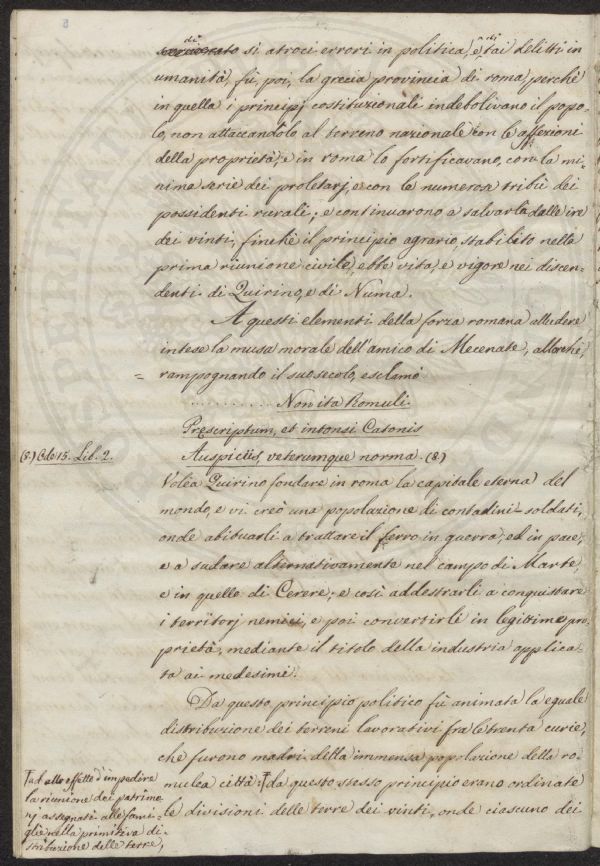 di
si atroci errori in politica, e di tai delitti in
umanità, fù, poi, la grecia provincia di roma, perchè
in quella i principj costituzionali indebolivano il popo-
lo, non attaccandolo al terreno nazionale con le affezioni
della proprietà, e in roma lo fortificavano, con la mi-
nima serie dei proletarj, e con le numerose tribù dei
possidenti rurali; e continuarono a salvarla dalle ire
dei vinti, finchè il principio agrario, stabilito nella
prima riunione civile, ebbe vita, e vigore nei discen-
denti di Quirino, e di Numa.
A questi elementi della forza romana alludere
intese la musa morale dell'amico di Mecenate, allorchè,
rampognando il suo secolo, esclamò
= . . . . . . . . . . . Non ita Romuli
Prescriptum, et intonsi Catonis
(8.) Ode 15. Lib. 2. Auspiciis, veterumque norma. (8.)
Volea Quirino fondare in roma la capitale eterna del
mondo, e vi creò una popolazione di contadini-soldati,
onde abituarli a trattare il ferro in guerra, ed in pace,
e a sudare alternativamente nel campo di Marte,
e in quello di Cerere; e così addestrarli a conquistare
i territorj nemici, e poi convertirli in legittime pro-
prietà, mediante il titolo della industria applica-
ta ai medesimi.
Da questo principio politico fù animata la eguale
distribuzione dei terreni lavorativi fra le trenta curie,
che furono madri della immensa popolazione della ro-
mulea città: † da questo stesso principio erano ordinate
le divisioni delle terre dei vinti, onde ciascuno dei
† ad effetto d'impedire
la riunione dei patrimo-
nj assegnati alle fami-
glie nella primitiva di-
stribuzione delle terre,